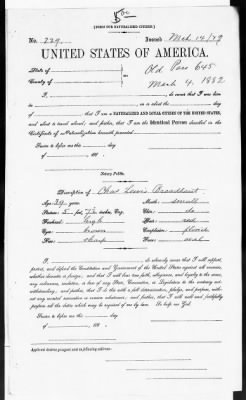 [FORM FOR NATURALIZED CITIZEN.]
No. 729 Issued Mch 14/79
UNITED STATES OF AMERICA.
State of
County of
Old Pass 645
March 4, 1882
I, do swear that I was born
in on or about the day
of ; that I am a NATURALIZED AND LOYAL CITIZEN OF THE UNITED STATES,
and about to travel abroad; and further, that I am the Identical Person described in the
Certificate of Naturalization herewith presented.
Sworn to before me this day
of 187 .
Notary Public.
Description of Chas Lewis
Age: 39 years Mouth: small
Stature: 5 feet, 7½ inches, Eng. Chin: do
Forehead: high Hair: red
Eyes: brown Complexion: florid
Nose: sharp Face: oval
I, do solemnly swear that I will support,
protect, and defend the Constitution and Government of the United States against all enemies,
whether domestic or foreign; and that I will bear true faith, allegiance, and loyalty to the same,
any ordinance, resolution, or law of any State, Convention, or Legislature to the contrary not-
withstanding; and further, that I do this with a full determination, pledge, and purpose, with-
out any mental reservation or evasion whatsoever; and further, that I will well and faithfully
perform all the duties which may be required of me by law. So help me God.
Sworn to before me this day
of 187 .
Applicant desires passport sent to following address: